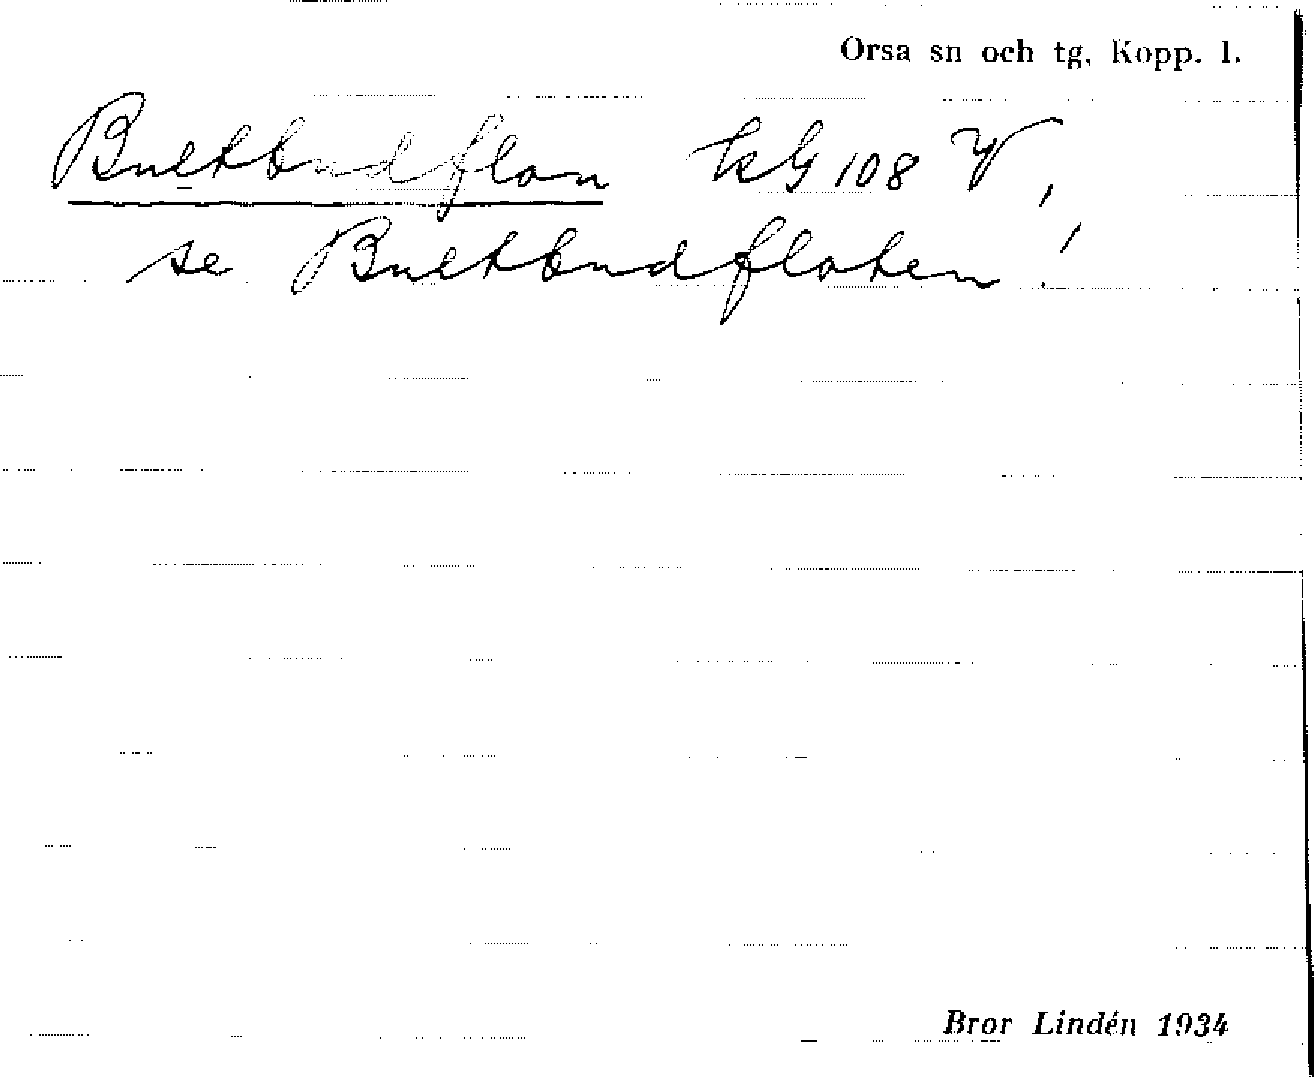 Orsa sn och tg, Kopp. l.
Bultbudflon kG 108 V,
se Bultbudfloten!
Bror Lindén 1934